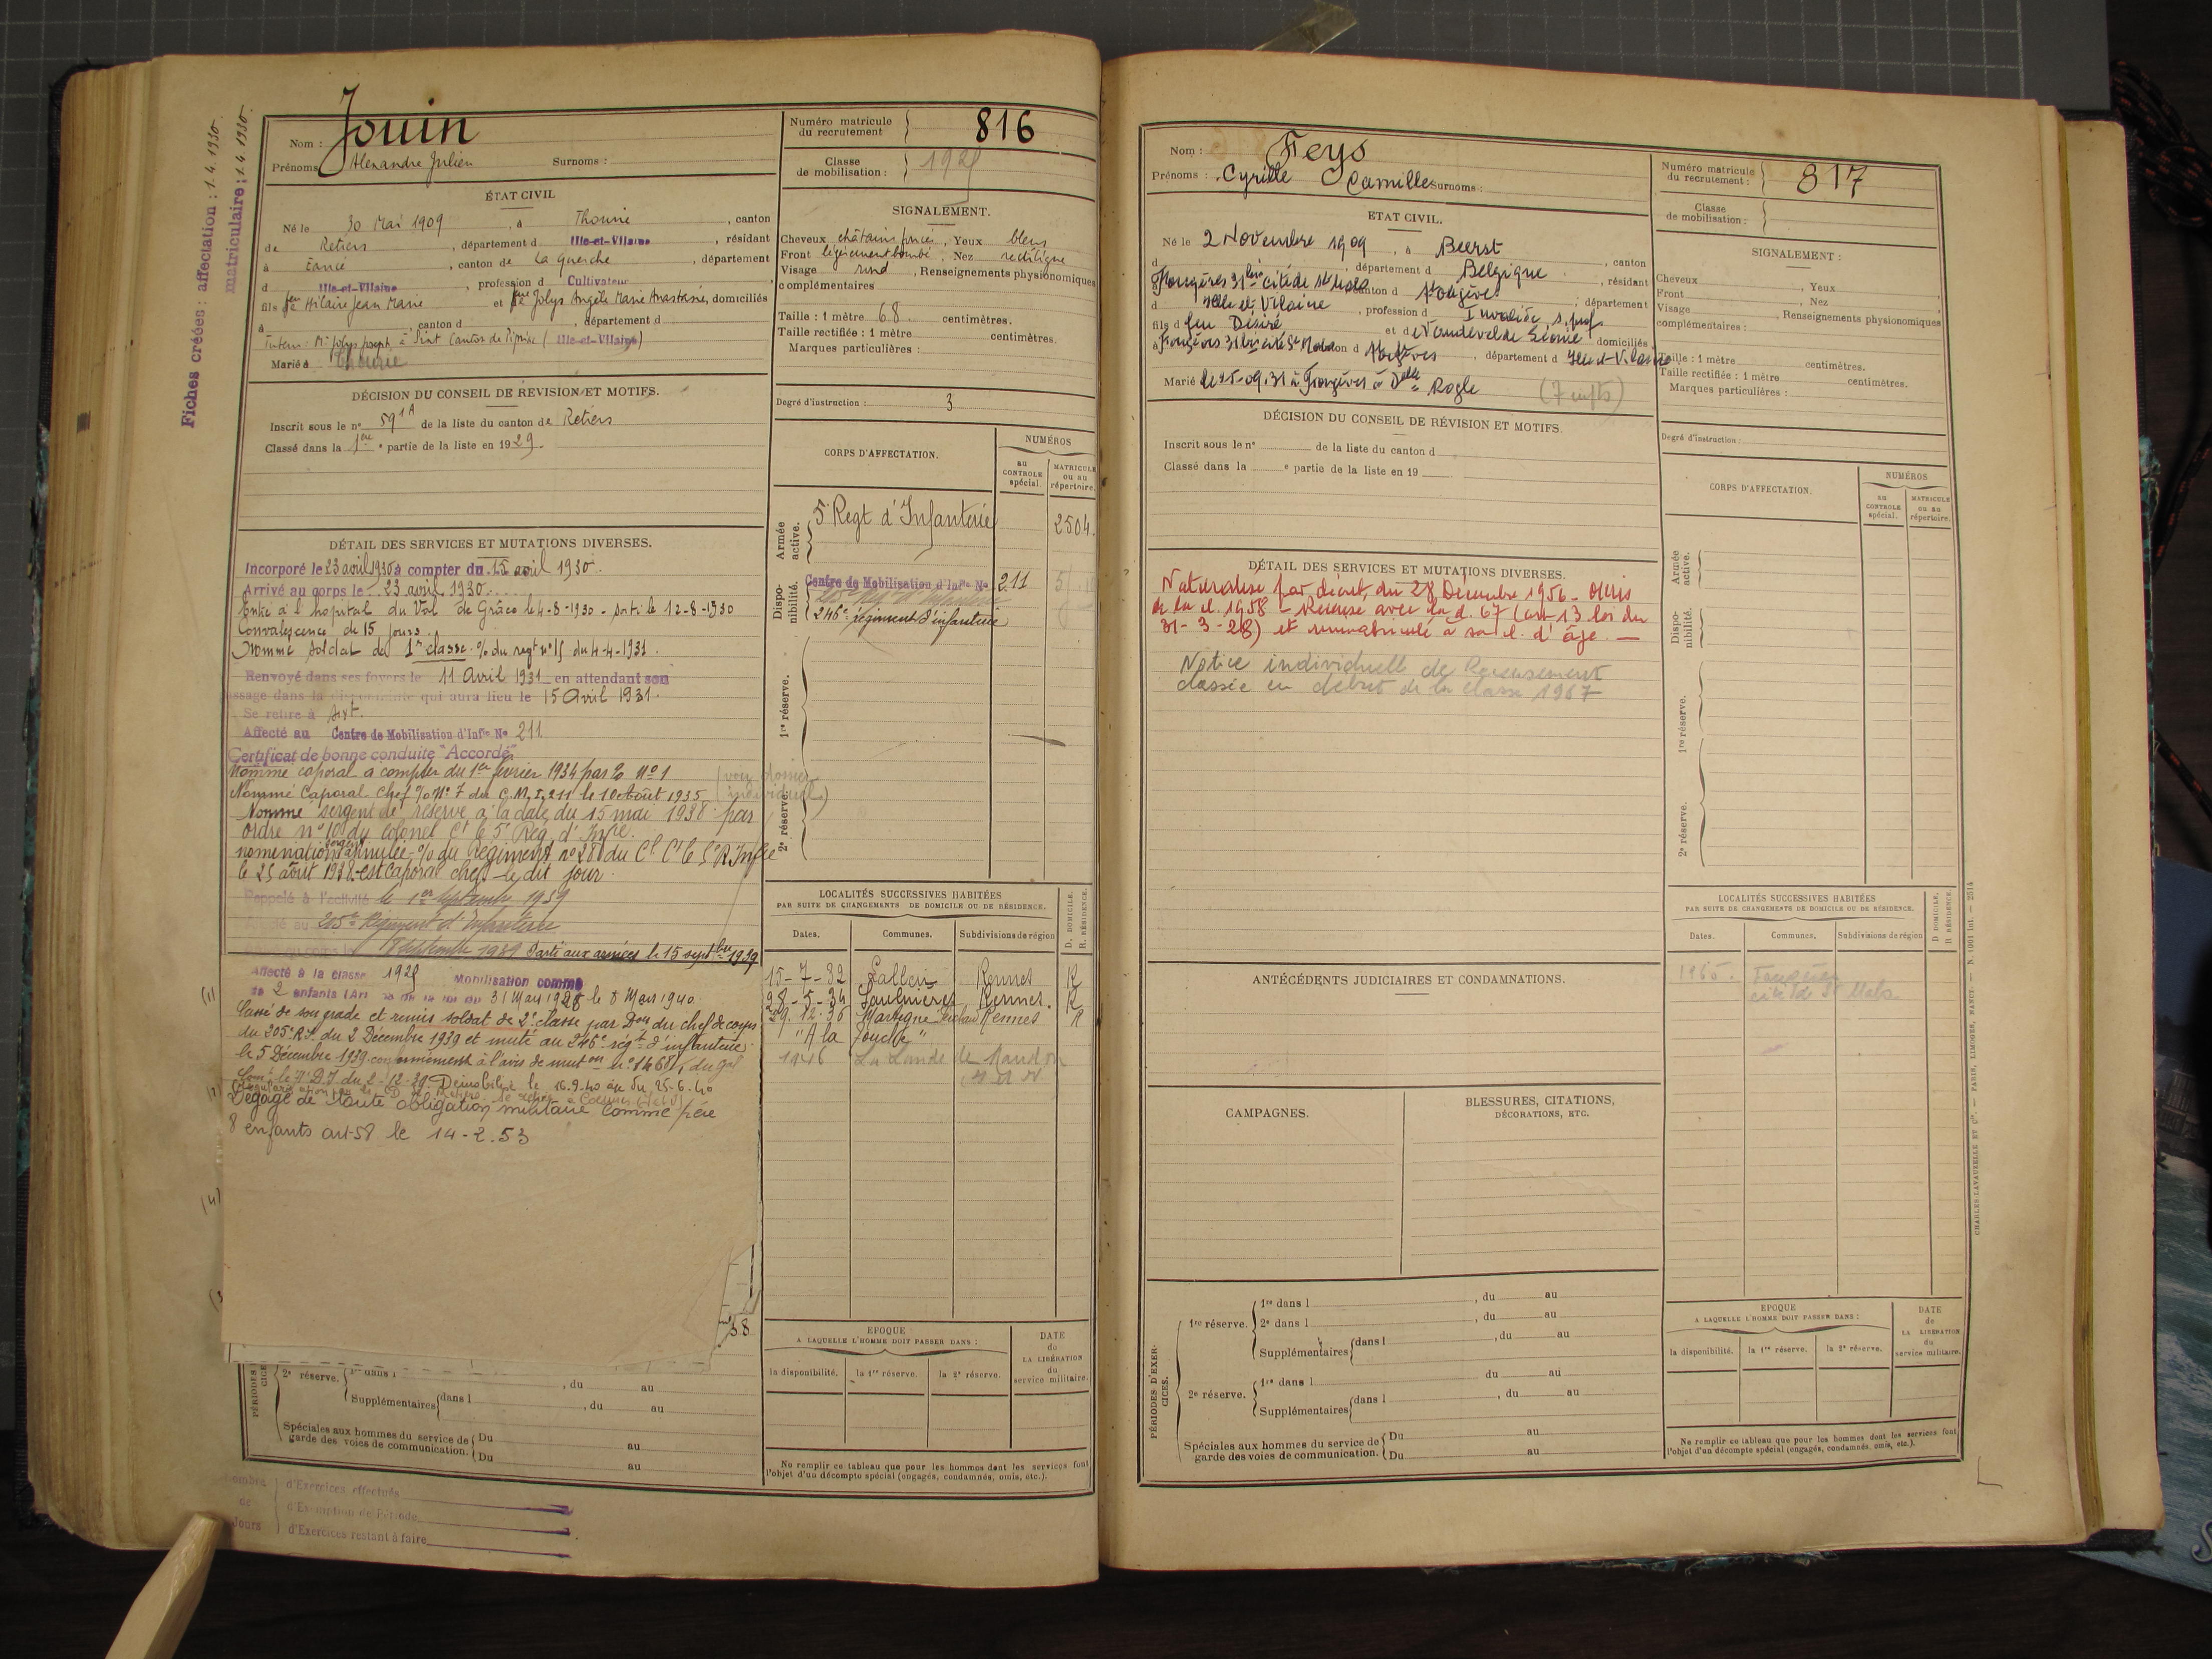 Fiches créées : affectation : 1.4.1930.
matriculaire : 1.4.1930.
Nom : Jouin
Prénoms Alexandre Julien Surnoms :
Numéro matricule du recrutement 816
Classe de mobilisation :
ÉTAT CIVIL
Né le 30 Mai 1909, à Thourie, canton
de Retiers, département d Ille-et-Vilaine, résidant
à Eancé, canton de La Guerche, département
d Ille-et-Vilaine, profession d Cultivateur
fils de feu Hilaire Jean Marie et de Jolys Angèle Marie Anastasie, domiciliés
à , canton d , département d
Marié à Thourie
SIGNALEMENT.
Cheveux châtains foncés, Yeux bleus
Front légèrement bombé, Nez rectiligne
Visage rond, Renseignements physionomiques
complémentaires
Taille : 1 mètre 68. centimètres.
Taille rectifiée : 1 mètre centimètres.
Marques particulières :
Degré d'instruction : 3
DÉCISION DU CONSEIL DE RÉVISION ET MOTIFS.
Inscrit sous le n° 59 1A de la liste du canton de Retiers
Classé dans la 1ère partie de la liste en 1929.
CORPS D'AFFECTATION.
NUMÉROS
au CONTROLE spécial.
MATRICULE ou au répertoire.
Armée active.
5e Regt d'Infanterie 2504.
Disponibilité.
Centre de Mobilisation d'Infie No 211
246e régiment d'infanterie
1re réserve.
2e réserve.
DÉTAIL DES SERVICES ET MUTATIONS DIVERSES.
Incorporé le 23 avril 1930 à compter du 15 avril 1930.
Arrivé au corps le 23 avril 1930.
Entré à l'hopital du Val de Grâce le 4-8-1930 - sorti le 12-8-1930
Convalescence de 15 jours.
Nommé soldat de 1re classe. % du regt n° 15 du 4-4-1931.
Renvoyé dans ses foyers le 11 Avril 1931 en attendant son
passage dans la disponibilité qui aura lieu le 15 Avril 1931.
Se retire à
Affecté au Centre de Mobilisation d'Infie No 211
Certificat de bonne conduite "Accordé"
Nommé caporal a compter du 1er fevrier 1934 par % No 1
(voir dossier individuel)
Nommé Caporal Chef % No 7 du C.M.I. 211 le 10 Août 1935
Nommé sergent de réserve a la date du 15 mai 1938 par
ordre n° 10 du Colonel Ct le 5e Rég d'Infie.
nomination sergent annulée % du Régiment n° 280 du Cl Ct le 5e R Infie
le 25 août 1938 est Caporal chef le dit jour.
Rappelé à l'activité le 1er Septembre 1939
205e Régiment d'Infanterie
Septembre 1939 Parti aux armées le 15 septbre 1939
Affecté à la classe Mobilisation comme
de 2 enfants 31 Mars 1928 le 8 Mars 1940
Cassé de son grade et remis soldat de 2e classe par Don du chef de corps
du 205e R.I. du 2 Décembre 1939 et muté au 246e régt d'infanterie
le 5 Décembre 1939 conformément à l'avis de muton n° 1468/1 du Gal
D.I. du 2-12-39 Démobilisé le 16.9.40 du 25-6-40
Dégagé de toute obligation militaire comme père
8 enfants art-58 le 14-2.53
(1)
(4)
38
LOCALITÉS SUCCESSIVES HABITÉES
PAR SUITE DE CHANGEMENTS DE DOMICILE OU DE RÉSIDENCE.
D. DOMICILE. R. RÉSIDENCE.
Dates. Communes. Subdivisions de région
15-7-32 Rennes R
28-5-34 Saulnières, Rennes. R
29.12.36 Martigné Ferchaud Rennes R
"A la Fouchi"
1946
EPOQUE
A LAQUELLE L'HOMME DOIT PASSER DANS :
la disponibilité. la 1re réserve. la 2e réserve.
DATE de LA LIBÉRATION du service militaire.
Ne remplir ce tableau que pour les hommes dont les services font
l'objet d'un décompte spécial (engagés, condamnés, omis, etc.).
PÉRIODES
2e réserve. 1re dans l , du au
Supplémentaires dans l , du au
Spéciales aux hommes du service de garde des voies de communication. Du au
Du au
Nombre de Jours
d'Exercices effectués
d'Exemption de Période
d'Exercices restant à faire
Nom : Feys
Prénoms : Cyrille Camille Surnoms :
Numéro matricule du recrutement : 817
Classe de mobilisation :
ETAT CIVIL.
Né le 2 Novembre 1909, à Beerst, canton
d , département d Belgique, résidant
à Fougères 31 bis cité de St Malo canton d Fougères, département
d Ille et Vilaine, profession d Invalide s. prof.
fils d feu Désiré et de Vandevelde Léonie domiciliés
à Fougères 31 bis cité St Malo canton d Fougères, département d Ille-et-Vilaine
Marié le 25-09.31 à Fougères à Dlle Rogle (7 infts)
SIGNALEMENT :
Cheveux , Yeux
Front , Nez
Visage , Renseignements physionomiques
complémentaires :
Taille : 1 mètre centimètres.
Taille rectifiée : 1 mètre centimètres.
Marques particulières :
Degré d'instruction :
DÉCISION DU CONSEIL DE RÉVISION ET MOTIFS.
Inscrit sous le n° de la liste du canton d
Classé dans la e partie de la liste en 19
CORPS D'AFFECTATION.
NUMÉROS
au CONTROLE spécial.
MATRICULE ou au répertoire.
Armée active.
Disponibilité.
1re réserve.
2e réserve.
DÉTAIL DES SERVICES ET MUTATIONS DIVERSES.
Naturalisé par décret du 28 Décembre 1956 - Omis
de la cl. 1958 - Recensé avec la cl. 67 (art 13 loi du
31-3-28) et immatriculé à sa cl. d'âge. —
Notice individuelle de Recensement
classée en début de la classe 1967
LOCALITÉS SUCCESSIVES HABITÉES
PAR SUITE DE CHANGEMENTS DE DOMICILE OU DE RÉSIDENCE.
D DOMICILE. R. RÉSIDENCE.
Dates. Communes. Subdivisions de région
1965. Fougères
cité de St Malo
ANTÉCÉDENTS JUDICIAIRES ET CONDAMNATIONS.
CAMPAGNES.
BLESSURES, CITATIONS, DÉCORATIONS, ETC.
PÉRIODES D'EXERCICES.
1re réserve. 1re dans l , du au
2e dans l , du au
Supplémentaires dans l , du au
du au
2e réserve. 1re dans l du au
Supplémentaires dans l , du au
Spéciales aux hommes du service de garde des voies de communication. Du au
Du au
EPOQUE
A LAQUELLE L'HOMME DOIT PASSER DANS :
la disponibilité. la 1re réserve. la 2e réserve.
DATE de LA LIBÉRATION du service militaire.
Ne remplir ce tableau que pour les hommes dont les services font
l'objet d'un décompte spécial (engagés, condamnés, omis, etc.).
CHARLES-LAVAUZELLE ET Cie. — PARIS, LIMOGES, NANCY. — N. 1001 Int. — 2514